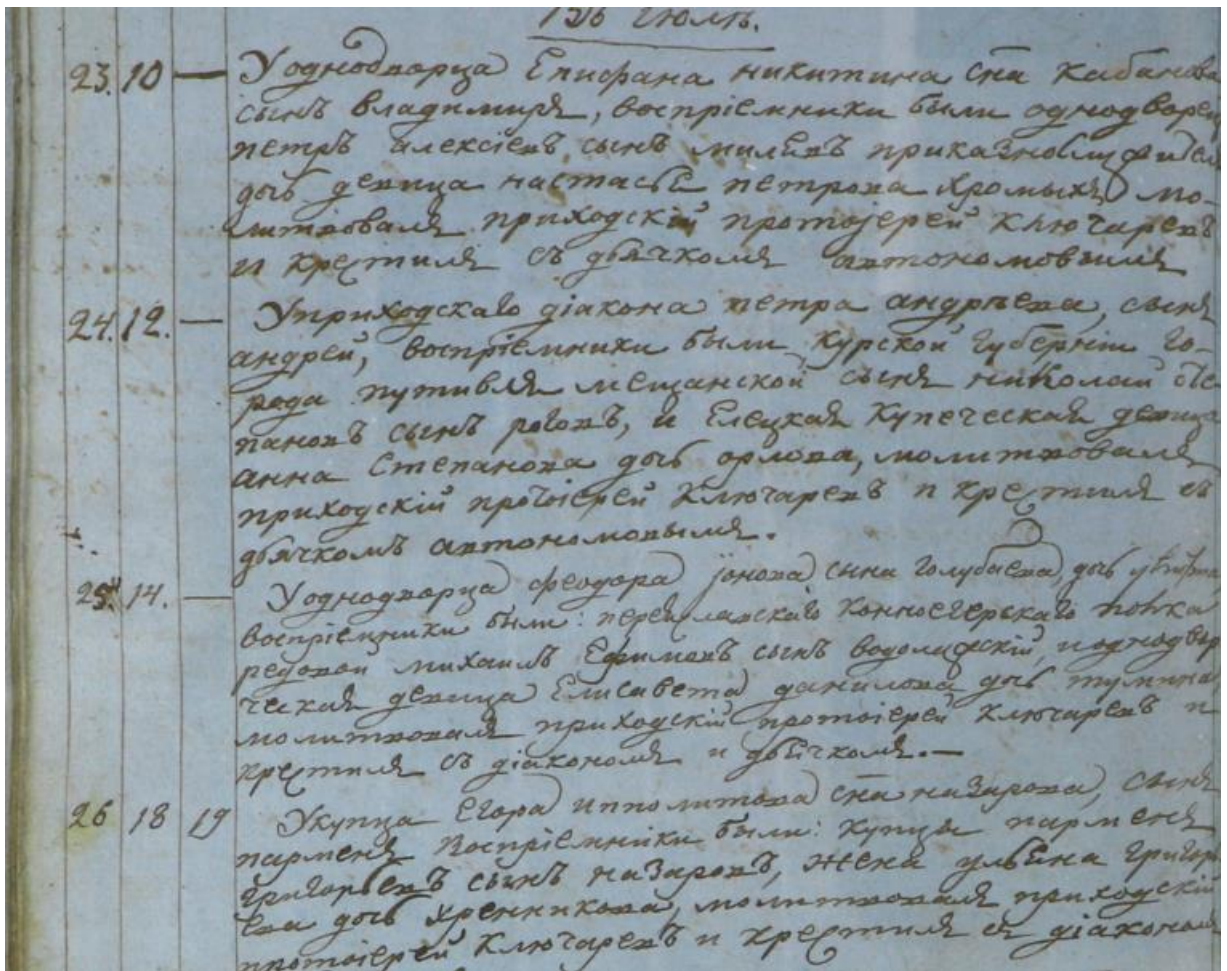 Июль.
23. 10 — У однодворца Епифана никитина сна Кабанова
сынъ владимиръ, воспріемники были однодворец
петръ алексіевъ сынъ милевъ
дочь девица настасья петрова хромыхъ мо-
литвовалъ приходскій протоіерей ключаревъ
и крестилъ съ дьячкомъ автономовымъ
24. 12. — У приходскаго діакона петра андрѣева, сынъ
андрей, воспріемники были курской губерніи го-
рода путивля мещанской сынъ николай сте
пановъ сынъ роговъ, и Елецкая купеческая девица
анна Степанова дочь орлова, молитвовалъ
приходскій протоіерей ключаревъ и крестилъ съ
дьячкомъ автономовымъ.
25. 14. — У однодворца феодора іонова сына голубаева, дочь
воспріемники были: переяславскаго конноегерскаго полка
редовой михаилъ Ефимовъ сынъ и однодвор
ческая девица Елисавета данилова дочь
молитвовалъ приходскій протоіерей ключаревъ и
крестилъ съ діакономъ и дьячкомъ. —
26 18 19 У купца Егора ипполитова сна назарова, сынъ
парменъ воспріемники были: купцы парменъ
григорьевъ сынъ назаровъ, жена ульяна григорь
ева дочь хренникова, молитвовалъ приходскій
протоіерей ключаревъ и крестилъ съ діакономъ